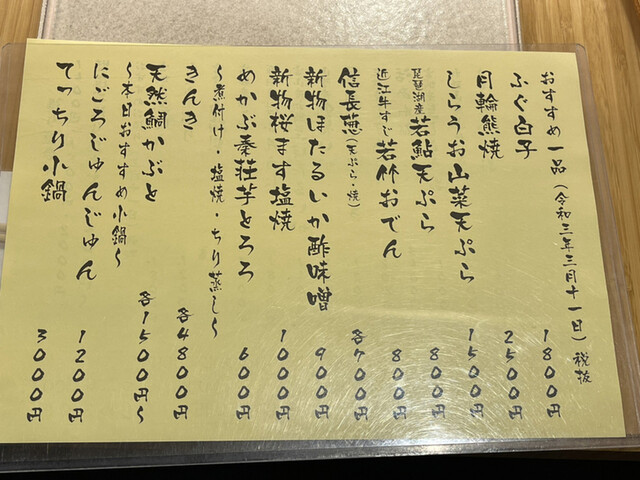 おすすめ一品（令和三年三月十一日）税抜
ふぐ白子 1800円
月輪熊焼 2500円
しらうお山菜天ぷら 1500円
琵琶湖産若鮎天ぷら 800円
近江牛すじ若竹おでん 800円
信長葱（天ぷら・焼） 各700円
新物ほたるいか酢味噌 900円
新物桜ます塩焼 1000円
めかぶ秦荘芋とろろ 600円
〜煮付け・塩焼・ちり蒸し〜
きんき 各4800円
天然鯛かぶと 各1500円〜
〜本日おすすめ小鍋〜
にごろじゅんじゅん 1200円
てっちり小鍋 3000円